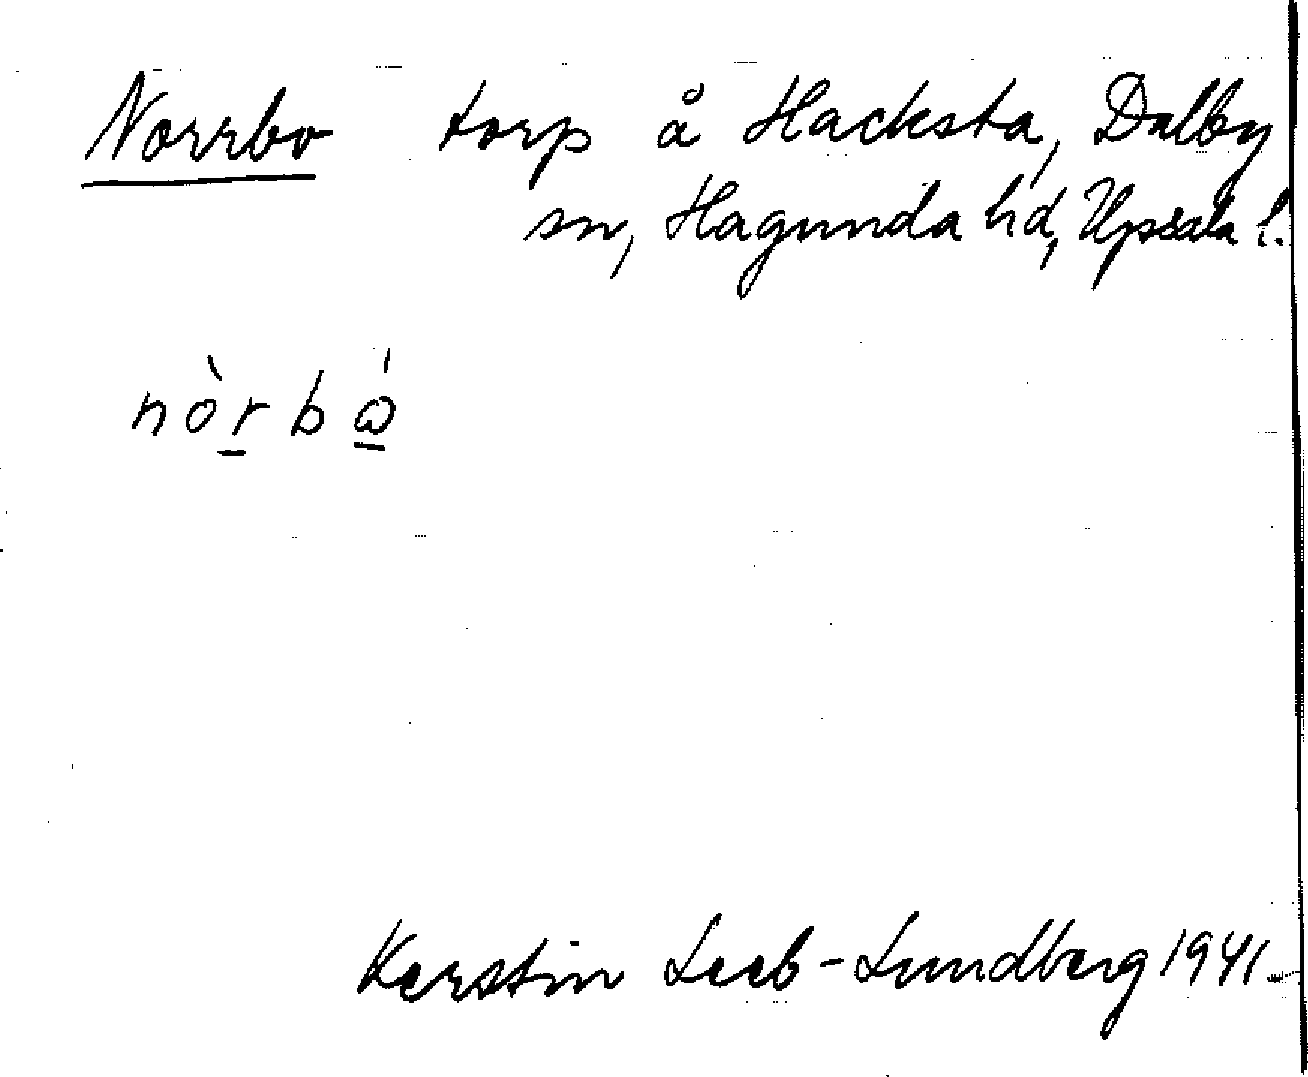 Norrbo torp å Hacksta, Dalby
sn, Hagunda hd, Upsala l.
nòrbώ̲
Kerstin Leeb-Lundberg 1941.